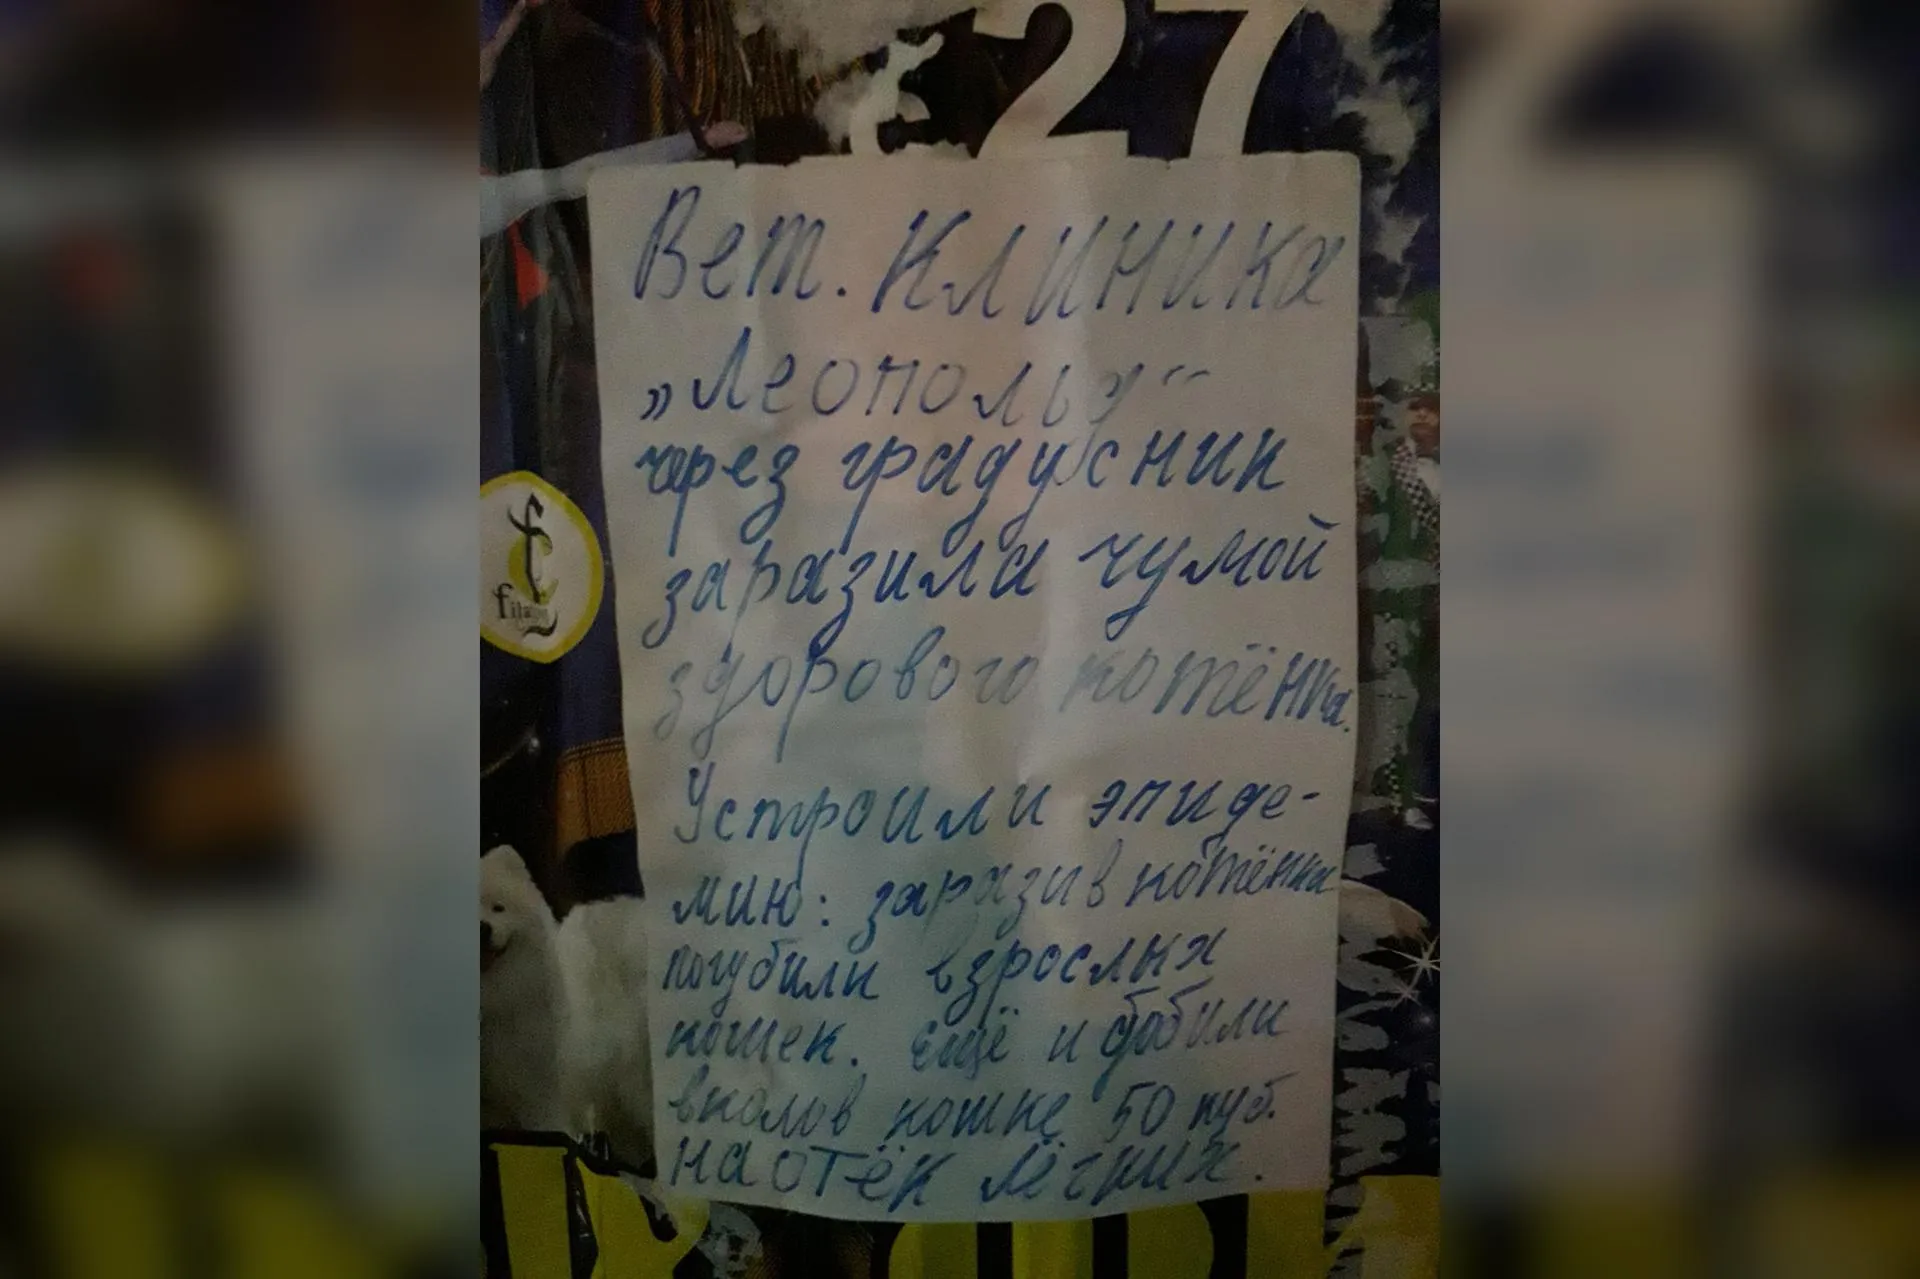 27
Вет. Клиника
„Леопольд“
через градусник
заразила чумой
здорового котёнка.
Устроили эпиде-
мию: заразив котёнка
погубили взрослых
кошек. Ещё и добили
вколов кошке 50 куб.
на отёк лёгких.